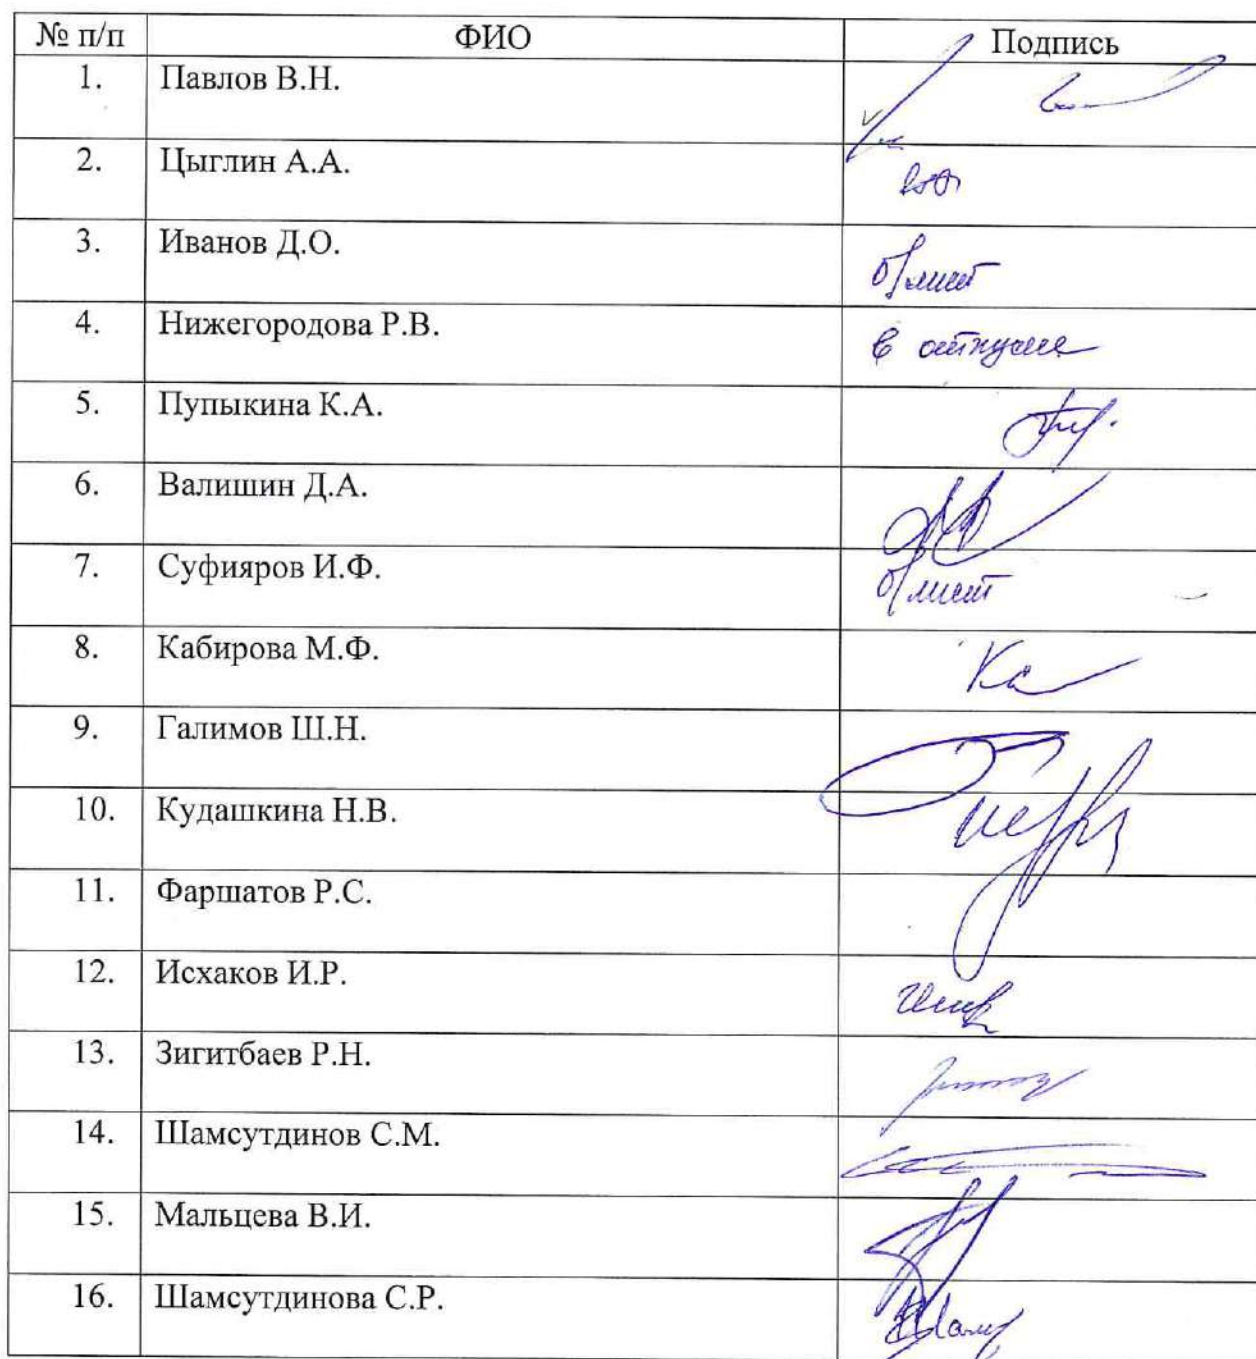 № п/п ФИО Подпись
1. Павлов В.Н.
2. Цыглин А.А.
3. Иванов Д.О. б/лист
4. Нижегородова Р.В. в отпуске
5. Пупыкина К.А.
6. Валишин Д.А.
7. Суфияров И.Ф. б/лист
8. Кабирова М.Ф.
9. Галимов Ш.Н.
10. Кудашкина Н.В.
11. Фаршатов Р.С.
12. Исхаков И.Р.
13. Зигитбаев Р.Н.
14. Шамсутдинов С.М.
15. Мальцева В.И.
16. Шамсутдинова С.Р.